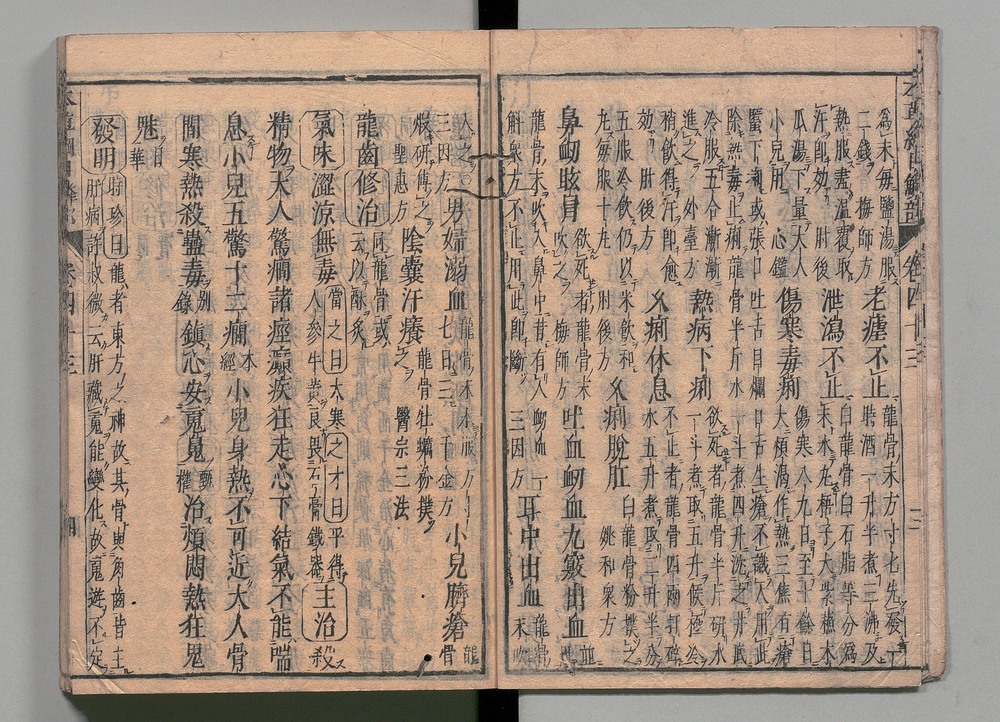 為末每鹽湯服
二錢梅師方
老瘧不止
龍骨末方寸匕先發一
時酒一升半煮三沸及
熱服盡溫覆取
汗即効肘後
泄瀉不止
白龍骨白石脂等分為
末水丸梧子大紫蘇木
瓜湯下量大人
小兒用心鑑
傷寒毒痢
傷寒八九日至十餘日
大煩渴作熱三焦有瘡
䘌下痢或張口吐舌目爛口舌生瘡不識人用此
除熱毒止痢龍骨半斤水一斗煮四升沈之井底
冷服五合漸漸
進之外臺方
熱病下痢
欲死者龍骨半斤研水
一斗煮取五升候極冷
稍飲得汗即愈
効肘後方
久痢休息
不止者龍骨四兩打碎
水五升煮取二升半分
五服冷飲仍以米飲和
丸每服十丸肘後方
久痢脫肛
白龍骨粉撲之
姚和衆方
鼻衄眩冒
欲死者龍骨末
吹之梅師方
吐血衄血九竅出血
並用
龍骨末吹入鼻中昔有人衄血一
斛衆方不止用此即斷三因方
耳中出血
龍骨
末吹
入之
三因方
男婦溺血
龍骨末水服方寸
七日三千金方
小兒臍瘡
龍骨
煆研傅之
聖惠方
陰囊汗癢
龍骨牡蠣粉撲
之醫宗三法
龍齒修治
同龍骨或
云以酥炙
氣味澀涼無毒
當之曰大寒之才曰平得
人參牛黃良畏石膏鐵器
主治殺
精物大人驚癇諸痙癲疾狂走心下結氣不能喘
息小兒五驚十二癇
本
經
小兒身熱不可近大人骨
間寒熱殺蠱毒
別
錄
鎮心安魂魄
甄
權
治煩悶熱狂鬼
魅
日
華
發明
時珍曰龍者東方之神故其骨與角齒皆主
肝病許叔微云肝藏魂能變化故魂遊不定